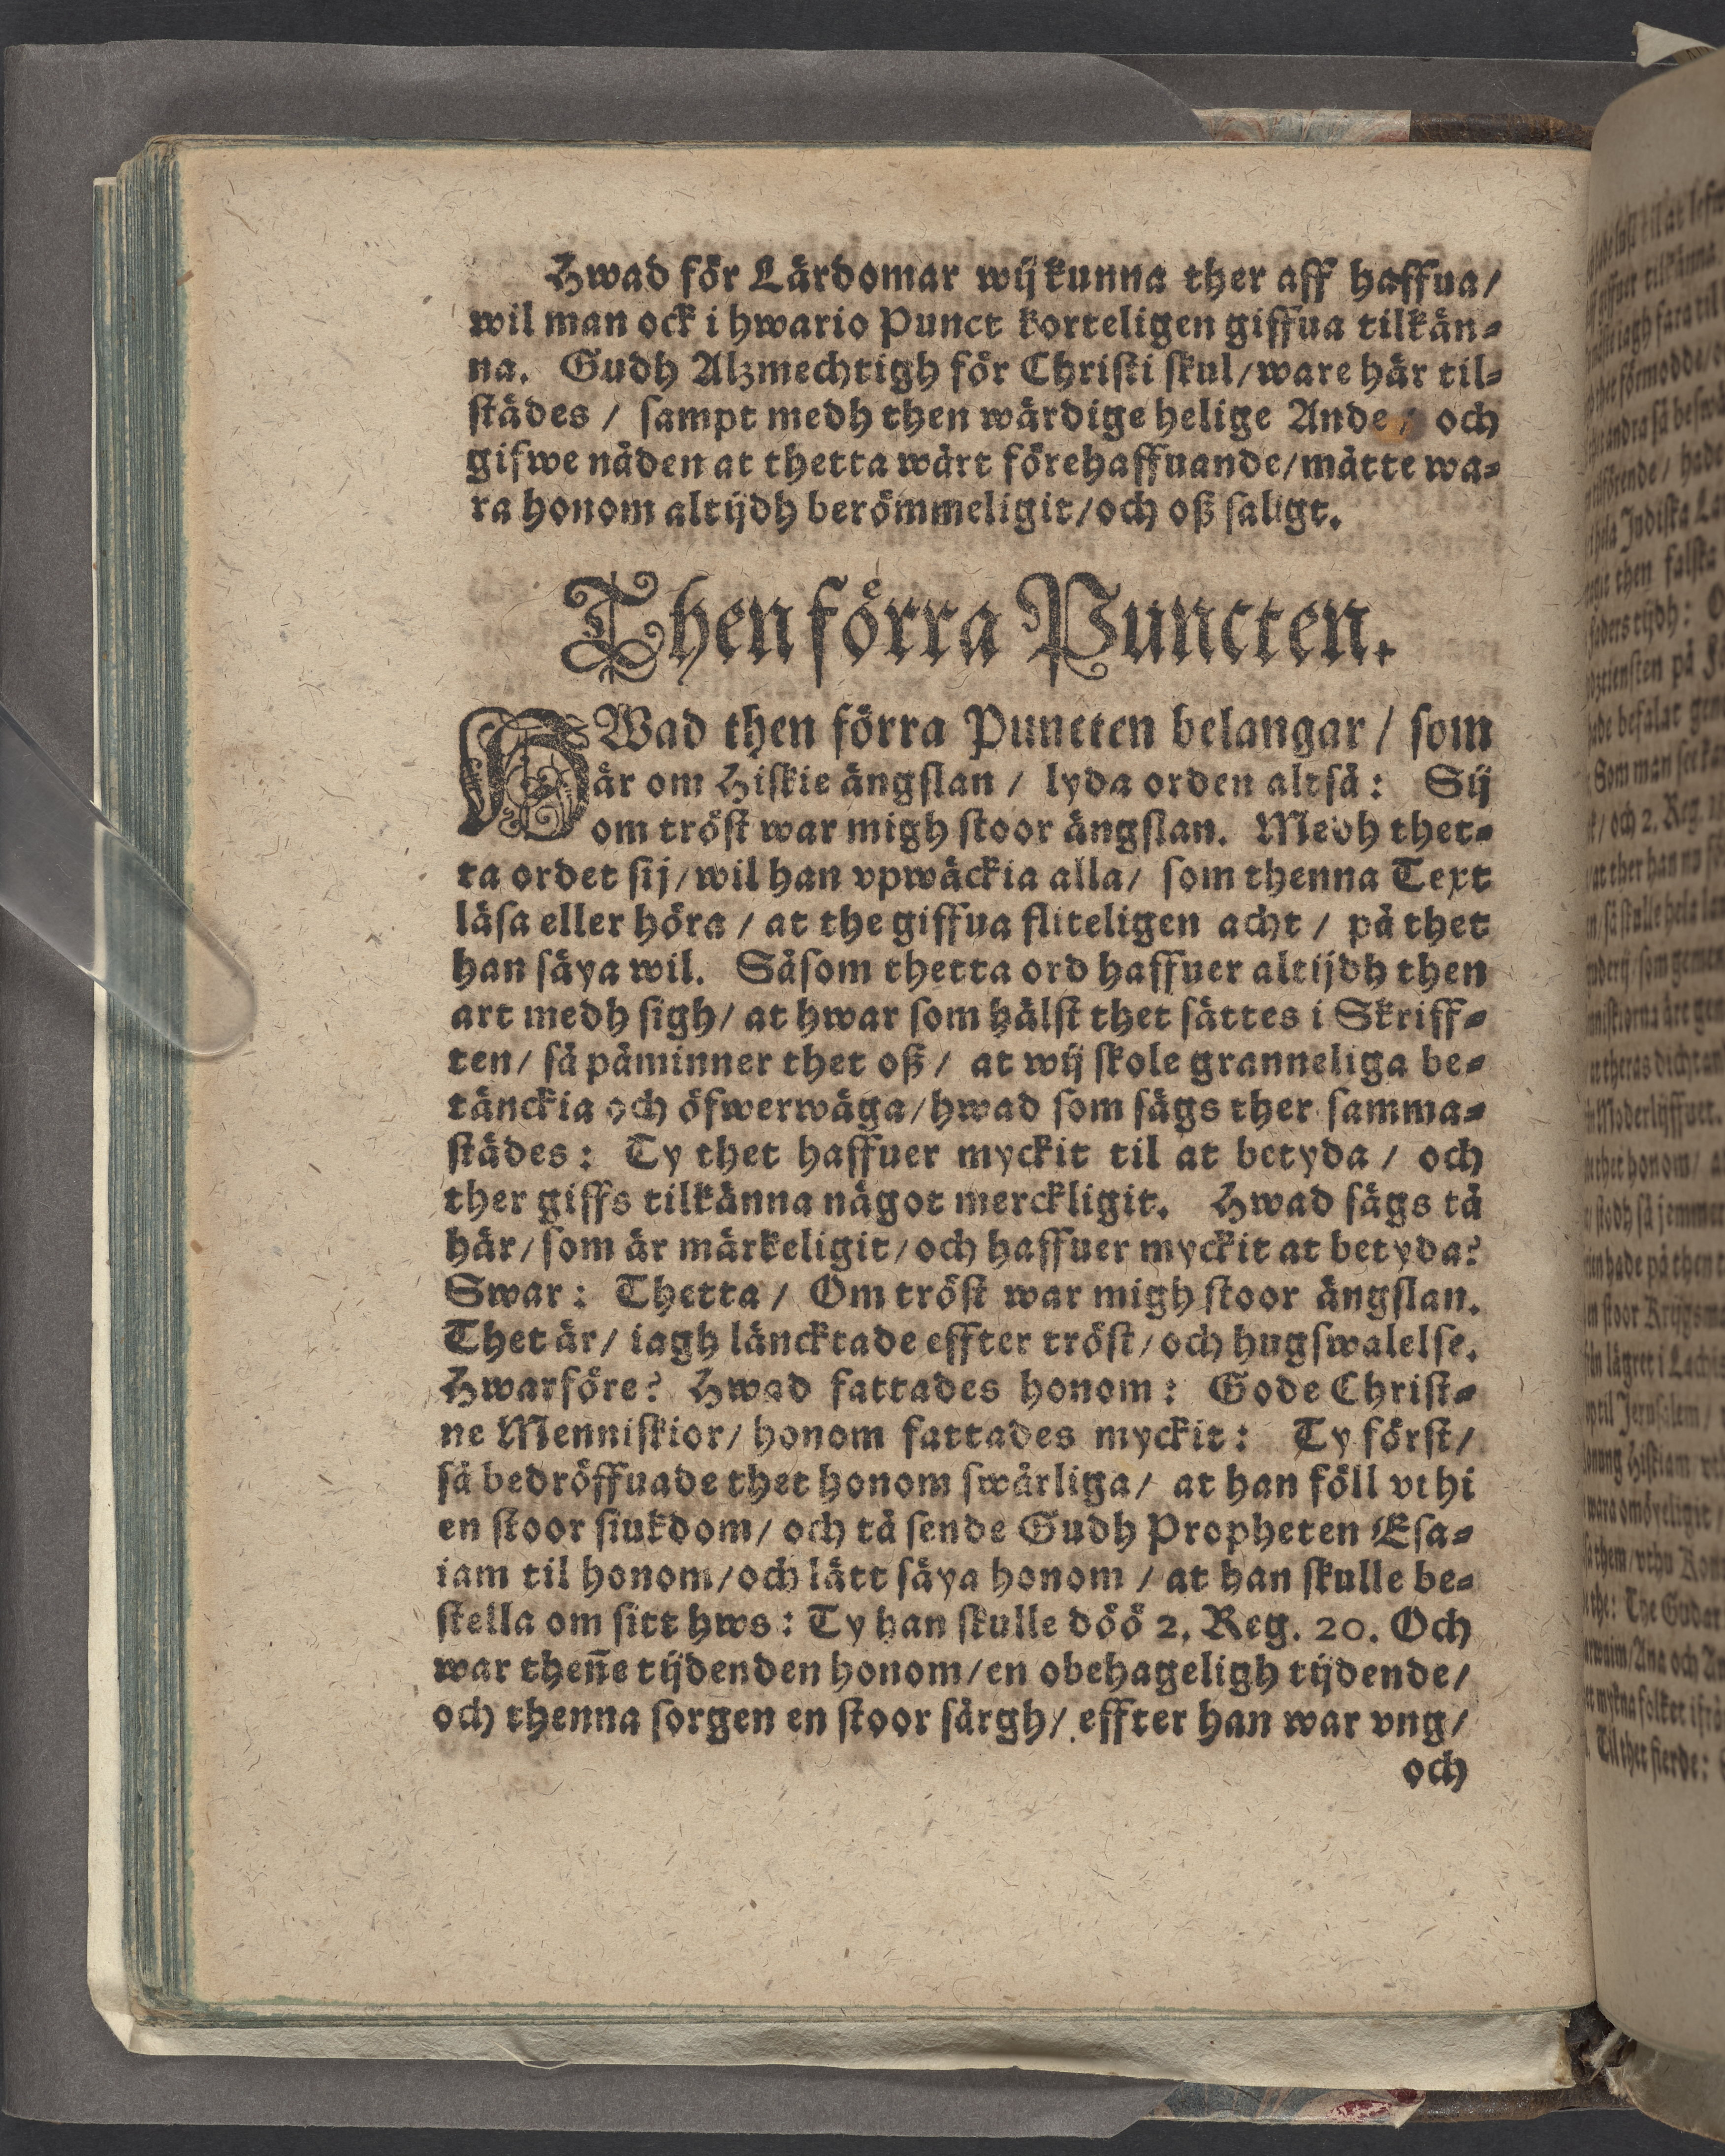 Hwad för Lärdomar wij kunna ther aff haffua/
wil man ock i hwario Punct korteligen giffua tilkän⸗
na. Gudh Alzmechtigh för Christi skul/ware här til⸗
städes / sampt medh then wärdige helige Ande / och
gifwe nåden at thetta wårt förehaffuande/måtte wa⸗
ra honom altijdh berömmeligit/och oß saligt.
Then förra Puncten.
HWad then förra Puncten belangar / som
är om Hiskie ängslan / lyda orden altså: Sij
om tröst war migh stoor ängslan. Medh thet⸗
ta ordet sij/wil han vpwäckia alla/ som thenna Text
läsa eller höra / at the giffua fliteligen acht / på thet
han säya wil. Såsom thetta ord haffuer altijdh then
art medh sigh/ at hwar som hälst thet sättes i Skriff⸗
ten/ så påminner thet oß / at wij skole granneliga be⸗
tänckia och öfwerwäga/hwad som sägs ther samma⸗
städes: Ty thet haffuer myckit til at betyda / och
ther giffs tilkänna något merckligit. Hwad sägs tå
här/som är märkeligit/och haffuer myckit at betyda?
Swar: Thetta / Om tröst war migh stoor ängslan.
Thet är/ iagh läncktade effter tröst/och hugswalelse.
Hwarföre? Hwad fattades honom: Gode Christ⸗
ne Menniskior/ honom fattades myckit: Ty först/
så bedröffuade thet honom swårliga/ at han föll vthi
en stoor siukdom/ och tå sende Gudh Propheten Esa⸗
iam til honom/och lätt säya honom / at han skulle be⸗
stella om sitt hws: Ty han skulle döö 2. Reg. 20. Och
war then̄e tijdenden honom/en obehageligh tijdende/
och thenna sorgen en stoor särgh/ effter han war vng/
och